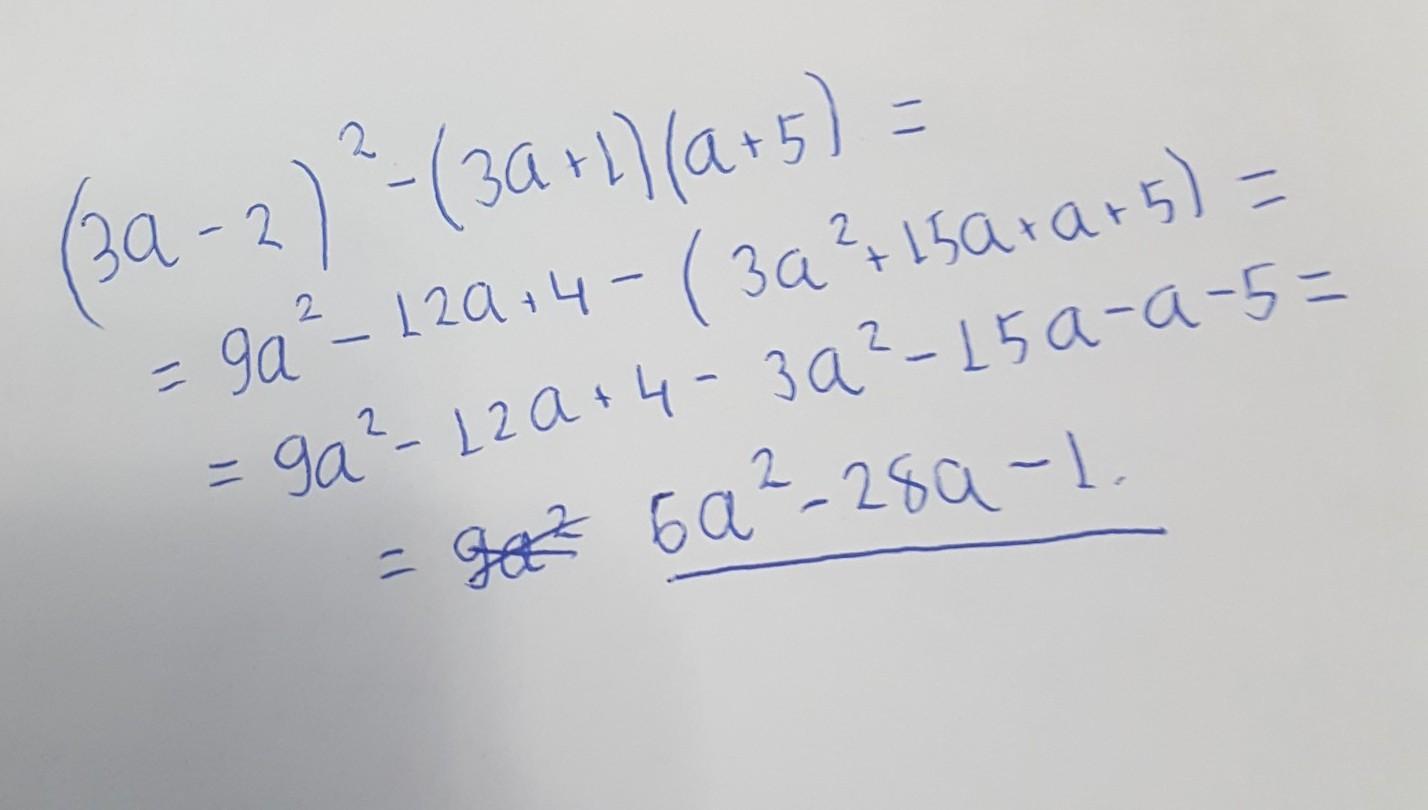 (3a-2)²-(3a+1)(a+5)=
=9a²-12a+4-(3a²+15a+a+5)=
=9a²-12a+4-3a²-15a-a-5=
=9a² 6a²-28a-1.